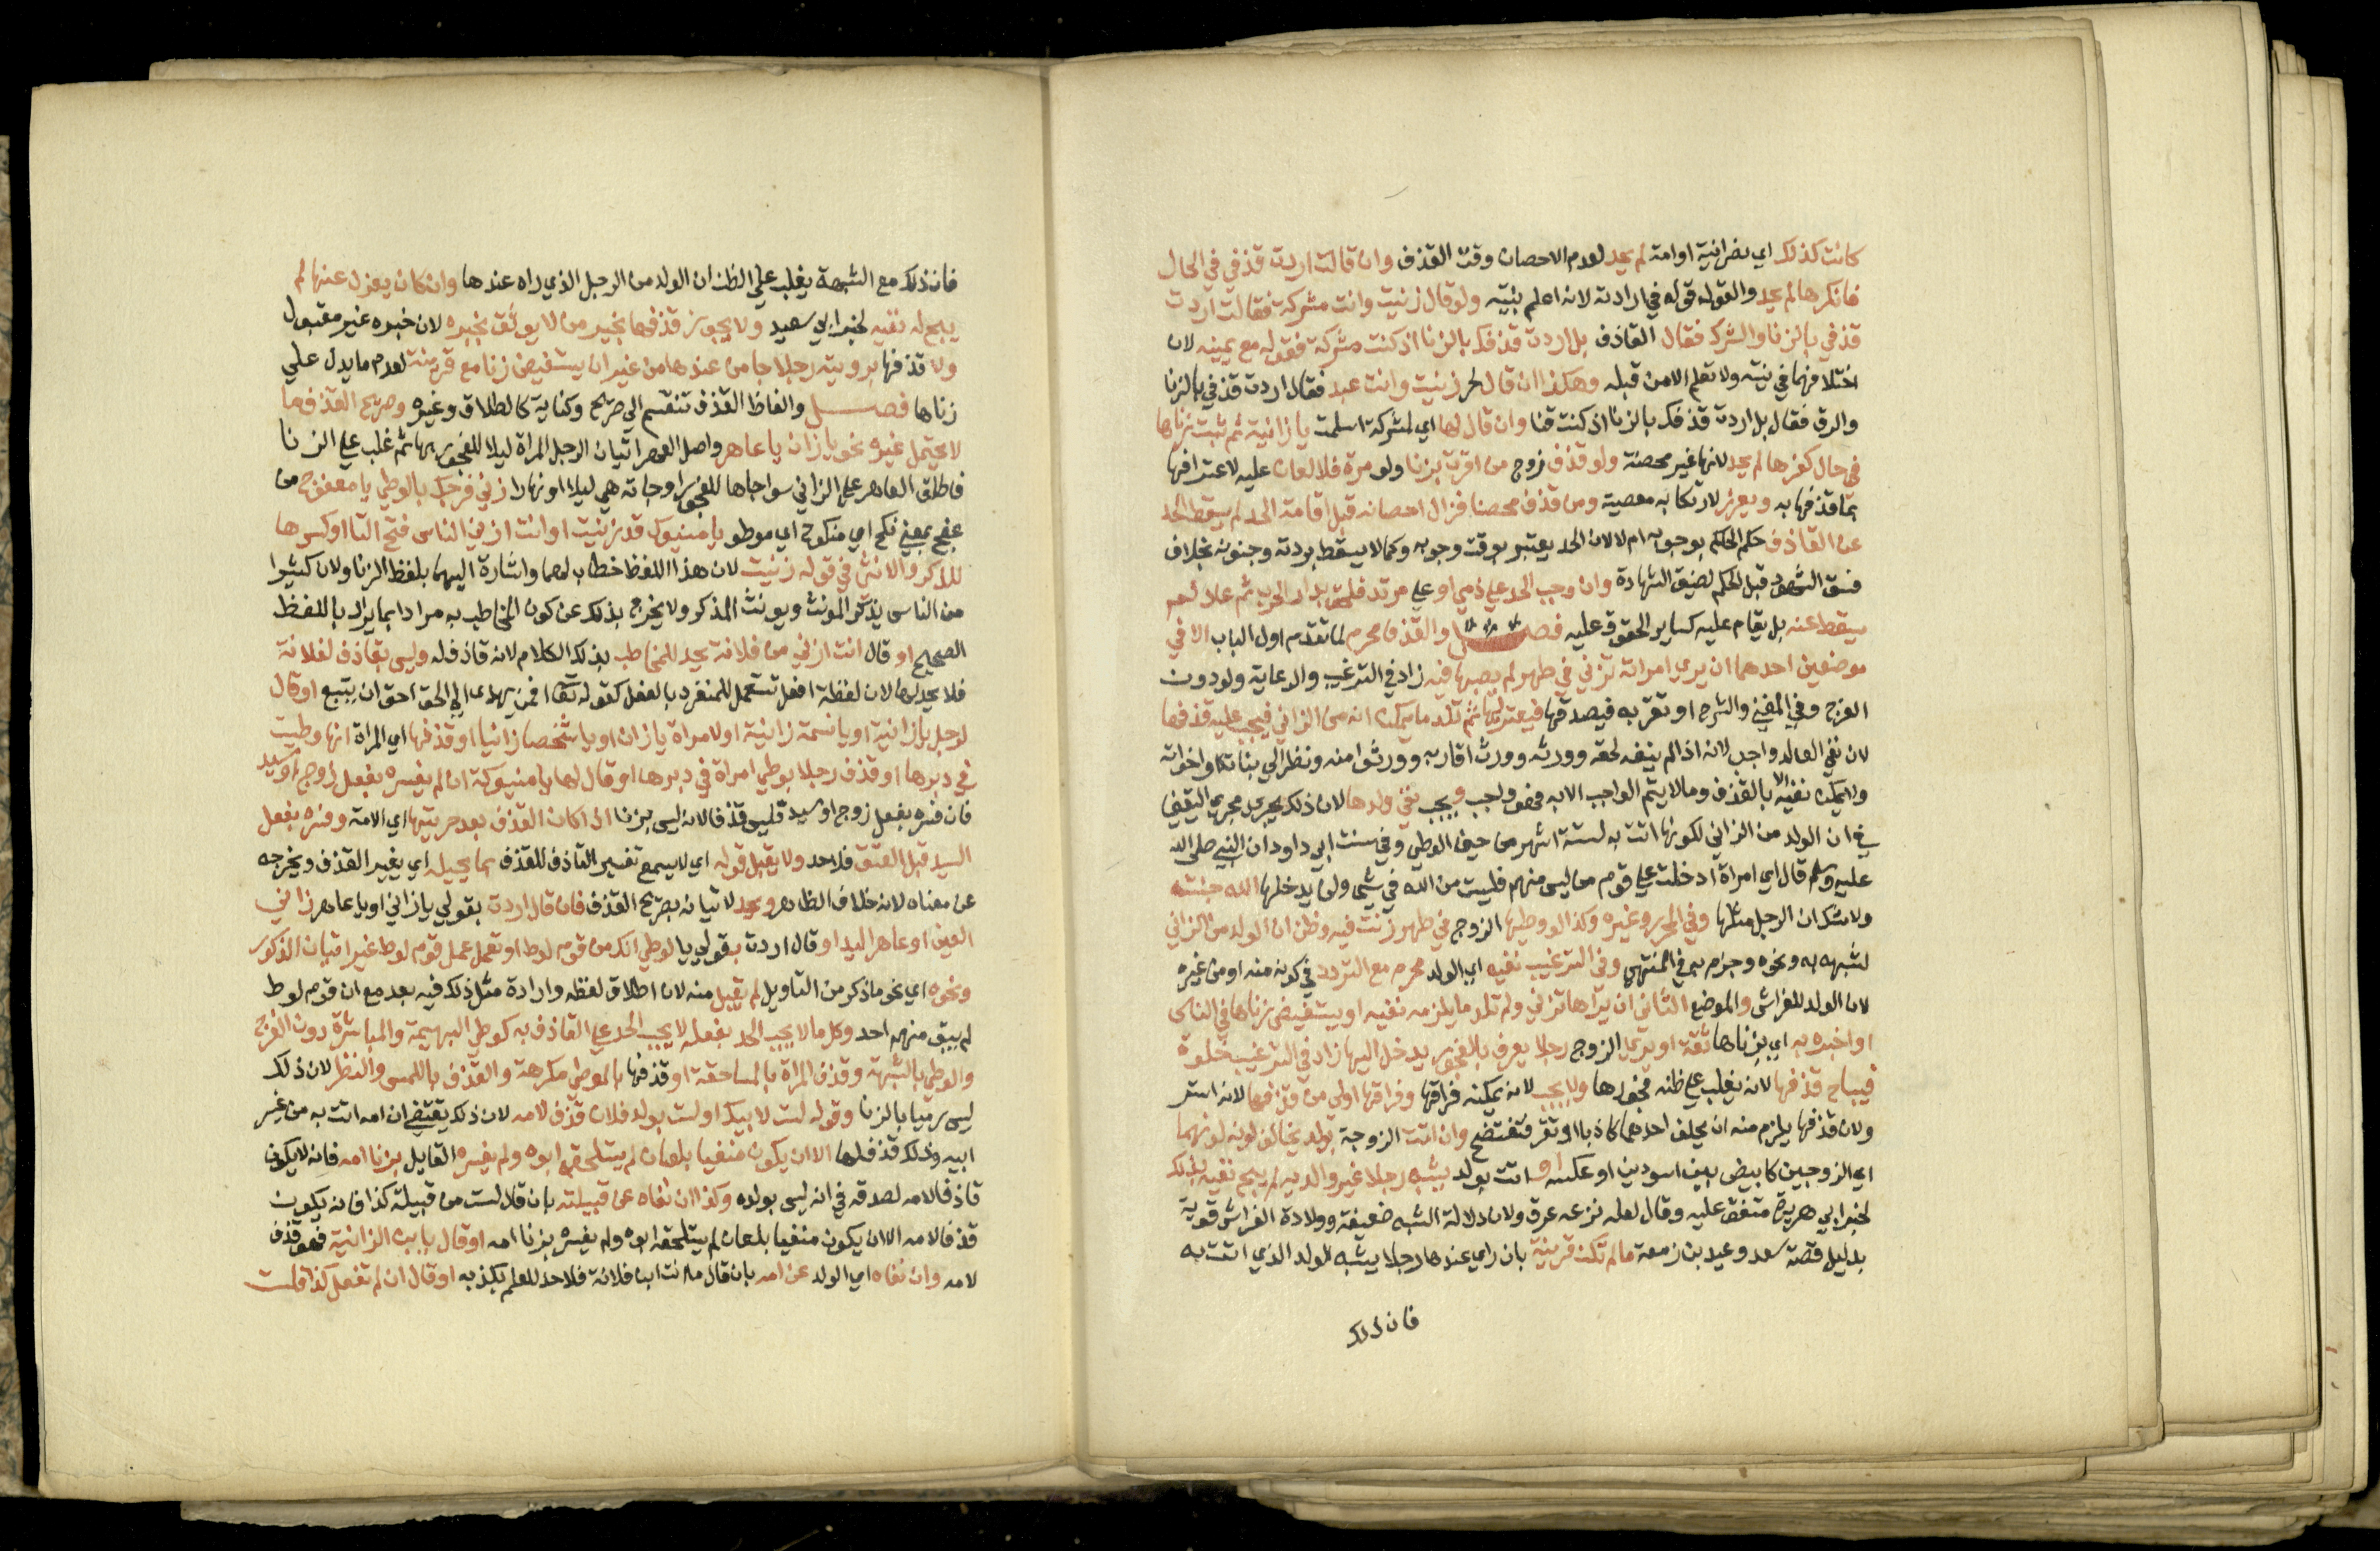 كانت كذلك اي نصرانية او امة لم يحد لعدم الاحصان وقت القذف وان قالت اردت قذفي في الحال
فانكرها لم يحد والقول قوله في ارادته لانه اعلم بنيته ولو قال زنيت وانت مشركة فقالت اردت
قذفي بالزنا والشرك فقال القاذف بل اردت قذفك بالزنا اذ كنت مشركة فقوله مع يمينه لان
اختلافهما في نيته ولا تعلم الا من قبله وهكذا ان قال لحر زنيت وانت عبد فقال اردت قذفي بالزنا
والرق فقال بل اردت قذفك بالزنا اذ كنت قنا وان قال لها اي لمشركة اسلمت يا زانية ثم ثبت زناها
في حال كفرها لم يحد لانها غير محصنة ولو قذف زوج من اقرت بزنا ولو مرة فلا لعان عليه لاعترافها
بما قذفها به ويعزر لارتكابه معصية ومن قذف محصنا فزال احصانه قبل اقامة الحد لم يسقط الحد
عن القاذف حكم الحاكم بوجوبه ام لا لان الحد يعتبر بوقت وجوبه وكما لا يسقط بردته وجنونه بخلاف
فسق الشهود قبل الحكم لضيق الشهادة وان وجب الحد على ذمي او على مرتد فلحق بدار الحرب ثم عاد لم
يسقط عنه بل يقام عليه كساير الحقوق عليه فصل والقذف محرم لما تقدم اول الباب الا في
موضعين احدهما ان يرى امراته تزني في طهر لم يصبها فيه زاد في الترغيب والرعاية ولو دون
الفرج وفي المغني والشرح او تقر به فيصدقها فيعتزلها ثم تلد ما يمكن انه من الزاني فيجب عليه قذفها
لان نفي الولد واجب لانه اذا لم ينفه لحقه وورثه وورث اقاربه وورثوا منه ونظر الى بناته واخواته
ولا يمكن نفيه الا بالقذف وما لا يتم الواجب الا به فهو واجب ويجب نفي ولدها لان ذلك يجري مجرى اليقين
في ان الولد من الزاني لكونها اتت به لستة اشهر من حين الوطي وفي سنن ابي داود ان النبي صلى الله
عليه وسلم قال اي امراة ادخلت على قوم من ليس منهم فليست من الله في شي ولن يدخلها الله جنته
ولا شك ان الرجل مثلها وفي المحرر وغيره وكذا لو وطيها الزوج في طهر زنت فيه وظن ان الولد من الزاني
لشبهه به ونحوه وجزم به في المنتهى وفي الترغيب نفيه اي الولد محرم مع التردد في كونه منه او من غيره
لان الولد للفراش والموضع الثاني ان يراها تزني ولم تلد ما يلزمه نفيه او يستفيض زناها في الناس
او اخبره به اي بزناها ثقة او يرى الزوج رجلا يعرف بالفجور يدخل اليها زاد في الترغيب خلوة
فيباح قذفها لانه يغلب على ظنه فجورها ولا يجب لانه يمكنه فراقها وفراقها اولى من قذفها لانه استر
ولان قذفها يلزم منه ان يحلف احدهما كاذبا او تقر فتفتضح وان اتت الزوجة بولد يخالف لونه لونهما
اي الزوجين كابيض بين اسودين او عكسه او اتت بولد يشبه رجلا غير والديه لم يبح نفيه بذلك
لخبر ابي هريرة متفق عليه وقال لعله نزعه عرق ولان دلالة الشبه ضعيفة وولادة الفراش قوية
بدليل قصة سعد وعبد بن زمعة ما لم تكن قرينة بان راى عندها رجلا يشبه الولد الذي اتت به
فان ذلك
فان ذلك مع الشبهة يغلب على الظن ان الولد من الرجل الذي راه عندها وان كان يعزل عنها لم
يبح له نفيه لخبر ابي سعيد ولا يجوز قذفها بخبر من لا يوثق بخبره لان خبره غير مقبول
ولا قذفها برويته رجلا جا من عندها من غير ان يستفيض زنا مع قرينة لعدم ما يدل على
زناها فصل والفاظ القذف تنقسم الى صريح وكناية كالطلاق وغيره وصريح القذف ما
لا يحتمل غيره نحو يا زان يا عاهر واصل العهر اتيان الرجل المراة ليلا للفجور بها ثم غلب على الزنا
فاطلق العاهر على الزاني سوا جاها للفجور او جاته هي ليلا او نهارا زني فرجك يا لوطي يا معفوج من
عفج بمعنى نكح اي منكوح اي موطو يا منيوك قد زنيت او انت ازنى الناس فتح التا او كسرها
للذكر والانثى في قوله زنيت لان هذا اللفظ خطاب لهما واشارة اليهما بلفظ الزنا ولان كثيرا
من الناس يذكر المونث ويونث المذكر ولا يخرج بذلك عن كون المخاطب به مرادا بما يراد باللفظ
الصحيح او قال انت ازنى من فلانة يحد للمخاطب بذلك الكلام لانه قاذف له وليس بقاذف لفلانة
فلا يحد لها لان لفظة افعل تستعمل للمنفرد بالفعل كقوله تعا افمن يهدي الى الحق احق ان يتبع او قال
لرجل يا زانية او يا نسمة زانية او لامراة يا زان او يا شخصا زانيا او قذفها اي المراة انها وطيت
في دبرها او قذف رجلا بوطي امراة في دبرها او قال لها يا منيوكة ان لم يفسره بفعل زوج او سيد
فان فسره بفعل زوج او سيد فليس قذفا لانه ليس بزنا اذا كان القذف بعد حريتها اي الامة وفسره بفعل
السيد قبل العتق فلا حد ولا يقبل قوله اي لا يسمع تفسير القاذف للقذف بما يحيله اي يغير القذف ويخرجه
عن معناه لانه خلاف الظاهر ويحد لاتيانه بصريح القذف فان قال اردت بقولي يا زاني او يا عاهر زاني
العين او عاهر اليد او قال اردت بقولي يا لوطي انك من قوم لوط او تعمل عمل قوم لوط غير اتيان الذكور
ونحوه اي نحو ما ذكر من التاويل لم يقبل منه لان اطلاق لفظه وارادة مثل ذلك فيه بعد مع ان قوم لوط
لم يبق منهم احد وكل ما لا يجب الحد بفعله لا يجب الحد على القاذف به كوطي البهيمة والمباشرة دون الفرج
والوطي بالشبهة وقذف المراة بالمساحقة او قذفها بالوطي مكرهة والقذف باللمس والنظر لان ذلك
ليس رميا بالزنا وقوله لست لابيك او لست بولد فلان قذف لامه لان ذلك يقتضي ان امه اتت به من غير
ابيه وذلك قذف لها الا ان يكون منفيا بلعان لم يستلحقه ابوه ولم يفسره القايل بزنا امه فانه لا يكون
قاذفا لامه لصدقه في انه ليس بولده وكذا ان نفاه عن قبيلته بان قال لست من قبيلة كذا فانه يكون
قذفا لامه الا ان يكون منفيا بلعان لم يستلحقه ابوه ولم يفسره بزنا امه او قال يا بن الزانية فهو قذف
لامه وان نفاه اي الولد عن امه بان قال ما انت ابن فلانة فلا حد للعلم بكذبه او قال ان لم تفعل كذا فلست